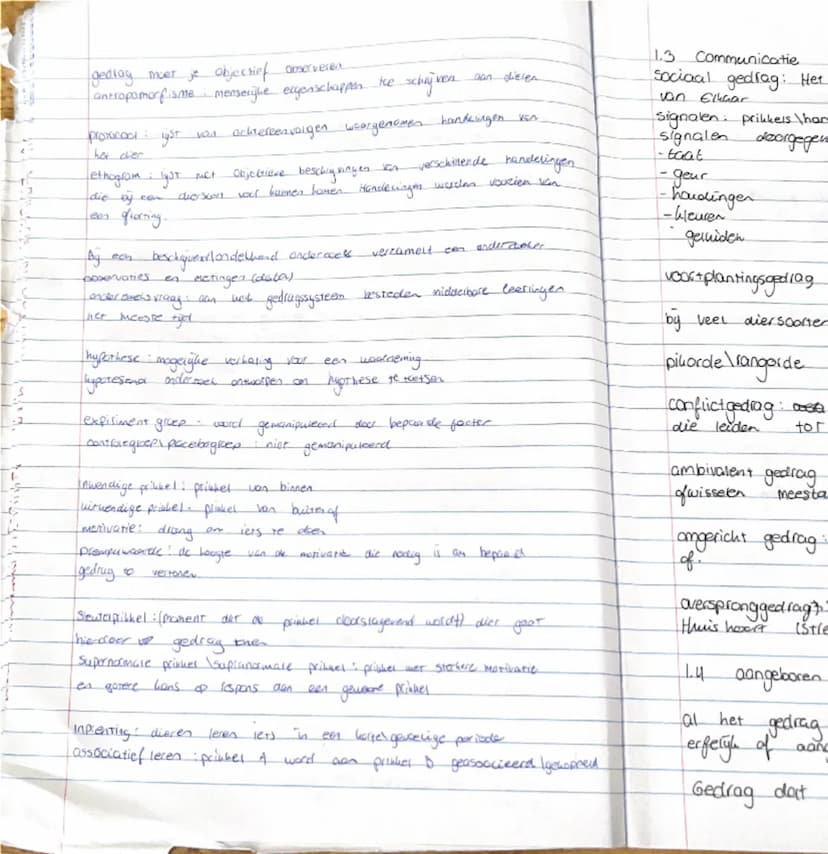 gedrag moet je objectief observeren
antropomorfisme : menselijke eigenschappen toe schrijven aan dieren
protocol : lijst van achtereenvolgen waargenomen handelingen van
het dier
ethogram : lijst met objectieve beschrijvingen van verschillende handelingen
die bij een diersoort voor kunnen komen. Handelingen worden voorzien van
een
Bij een beschrijvend onderzoek verzamelt een onderzoeker
observaties en metingen (data)
onderzoeksvraag : aan welk gedragssysteem besteden middelbare leerlingen
het meeste tijd
hypothese : mogelijke verklaring voor een waarneming
onderzoek ontworpen om hypothese te toetsen
expiriment groep : word gemanipuleerd door bepaalde factor
controlegroep\pacebogroep : niet gemanipuleerd
Inwendige prikkel : prikkel van binnen
uitwendige prikkel : prikkel van buiten af
motivatie : drang om iets te doen
: de hoogte van de motivatie die nodig is om bepaald
gedrag te vertonen
Sleutelprikkel : (moment dat de prikkel doorslagevend wordt) dier gaat
hierdoor gedrag tonen
Supernormale prikkel \ supranormale prikkel : prikkel met sterkere motivatie
en gotere kans op respons dan een gewone prikkel
Inprenting : dieren leren iets in een periode
associatief leren : prikkel A word aan prikkel B geassocieerd \gekoppeld
1.3 Communicatie
Sociaal gedrag : Het
van Elkaar
signalen : prikkels\han
signalen doorgegeven
- taal
- geur
- houdingen
- kleuren
geluiden
voortplantingsgedrag
bij veel diersoorten
pikorde\rangorde
conflictgedrag :
die leiden tot
ambivalent gedrag
afwisselen meesta
omgericht gedrag :
af.
oversprongedrag :
thuis hoort (stre
1.4 aangeboren
al het gedrag
erfelijk of aang
Gedrag dat